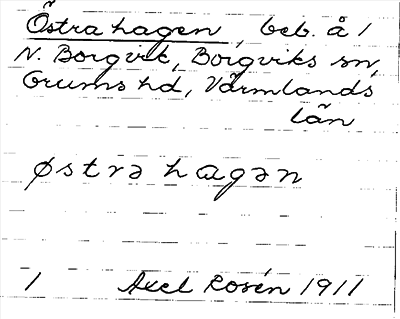 Östra hagen, beb. å 1
N. Borgvik, Borgviks sn,
Grums hd, Värmlands
län
østrə hagən
1 Axel Rosén 1911